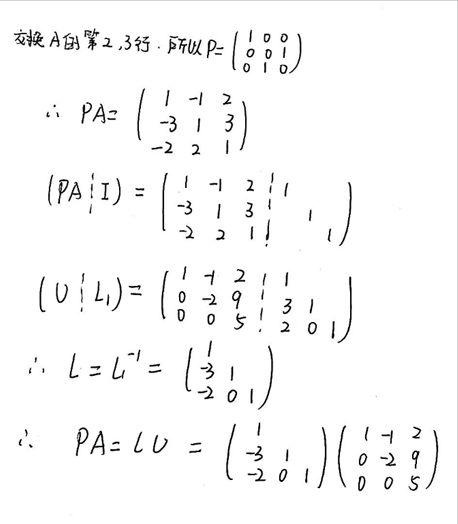 交换A的第2,3行.所以P=(1 0 0
0 0 1
0 1 0)
∴ PA= (1 -1 2
-3 1 3
-2 2 1)
(PA¦I) = (1 -1 2 ¦ 1
-3 1 3 ¦ 1
-2 2 1 ¦ 1)
(U¦L₁) = (1 -1 2 ¦ 1
0 -2 9 ¦ 3 1
0 0 5 ¦ 2 0 1)
∴ L = L₁⁻¹ = (1
-3 1
-2 0 1)
∴ PA = LU = (1
-3 1
-2 0 1) (1 -1 2
0 -2 9
0 0 5)